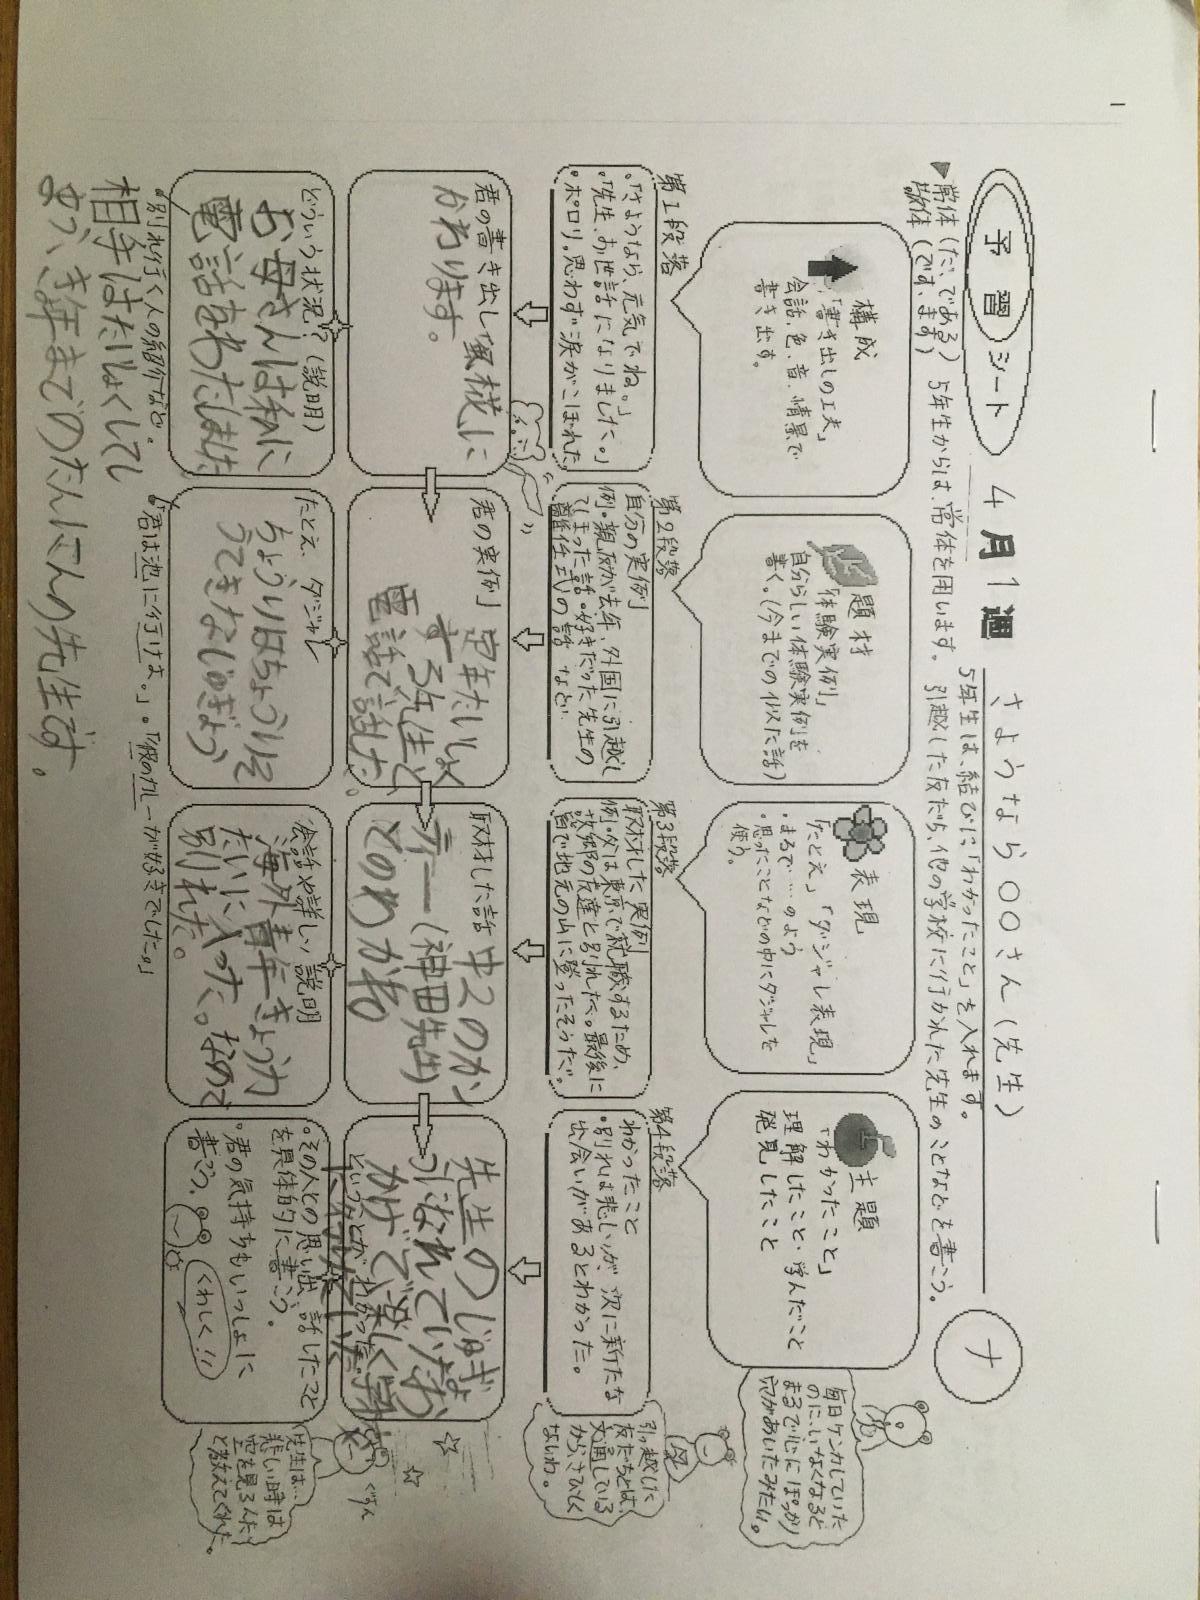 予習シート 4月1週 さようなら〇〇さん(先生) ナ
5年生は、結びに「わかったこと」を入れます。
▶常体(だ、である) 5年生からは、常体を用います。
敬体(です、ます)
引越した友だち、他の学校に行かれた先生のことなどを書こう。
構成
「書き出しの工夫」
会話、色、音、情景で
書き出す。
題材
「体験実例」
自分らしい体験実例を
書く。(今までの似た話)
表現
「たとえ」「ダジャレ表現」
・まるで…のよう
・思ったことなどの中にダジャレを
使う。
主題
「わかったこと」
理解したこと・学んだこと
発見したこと
毎日ケンカしていた
のに、いなくなると
まるで心にぽっかり
穴があいたみたい。
第1段落
・「さようなら、元気でね。」
・「先生、お世話になりました。」
・ポロリ。思わず涙がこぼれた
第2段落
自分の実例
例・親友が去年、外国に引越し
てしまった話。・好きだった先生の
離任式の話 など
第3段落
取材した実例
例・父は東京で就職するため、
故郷の友達と別れた。最後に
皆で地元の山に登ったそうだ。
第4段落
わかったこと
・別れは悲しいが、次に新たな
出会いがあるとわかった。
引っ越した
友だちとは、
文通している
から、さびしく
ないわ。
君の書き出し 無様に
かわります。
君の実例 定年たいしょく
する先生と
電話で話した。
取材した話 中2のかん
ティー(神田先生)
とのわかれ
先生のじゅぎょ
うになれていたお
かげで楽しく学
ということが、わかった。
どういう状況?(説明)
お母さんは私に
電話をわたしました
・別れ行く人の紹介など。
相手はたいしょくして
まう、き年までのたんにんの先生です。
たとえ、ダジャレ
ちょうりはちょうりそ
うてきなじゅぎょう
・「君は池に行けよ。」・「彼のカレーが好きでした。」
会話や詳しい説明
海外青年きょう力
たいに入った。なので
別れた。
・その人との思い出、話したこと
を具体的に書こう。
・君の気持ちもいっしょに
書こう。
くわしく!!
ぐすん
先生は…
悲しい時は
空を見るんだ
と教えてくれた。